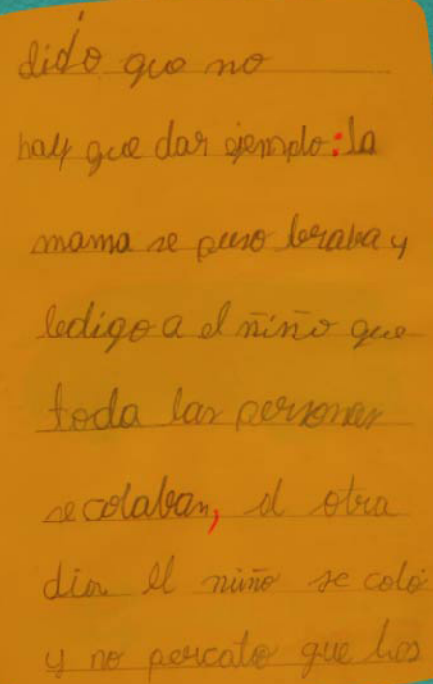 dido que no
hay que dar ejemplo: la
mama se puso braba y
ledigo a el niño que
toda las personas
se colaban, el otra
dia el niño se coló
y no percato que los